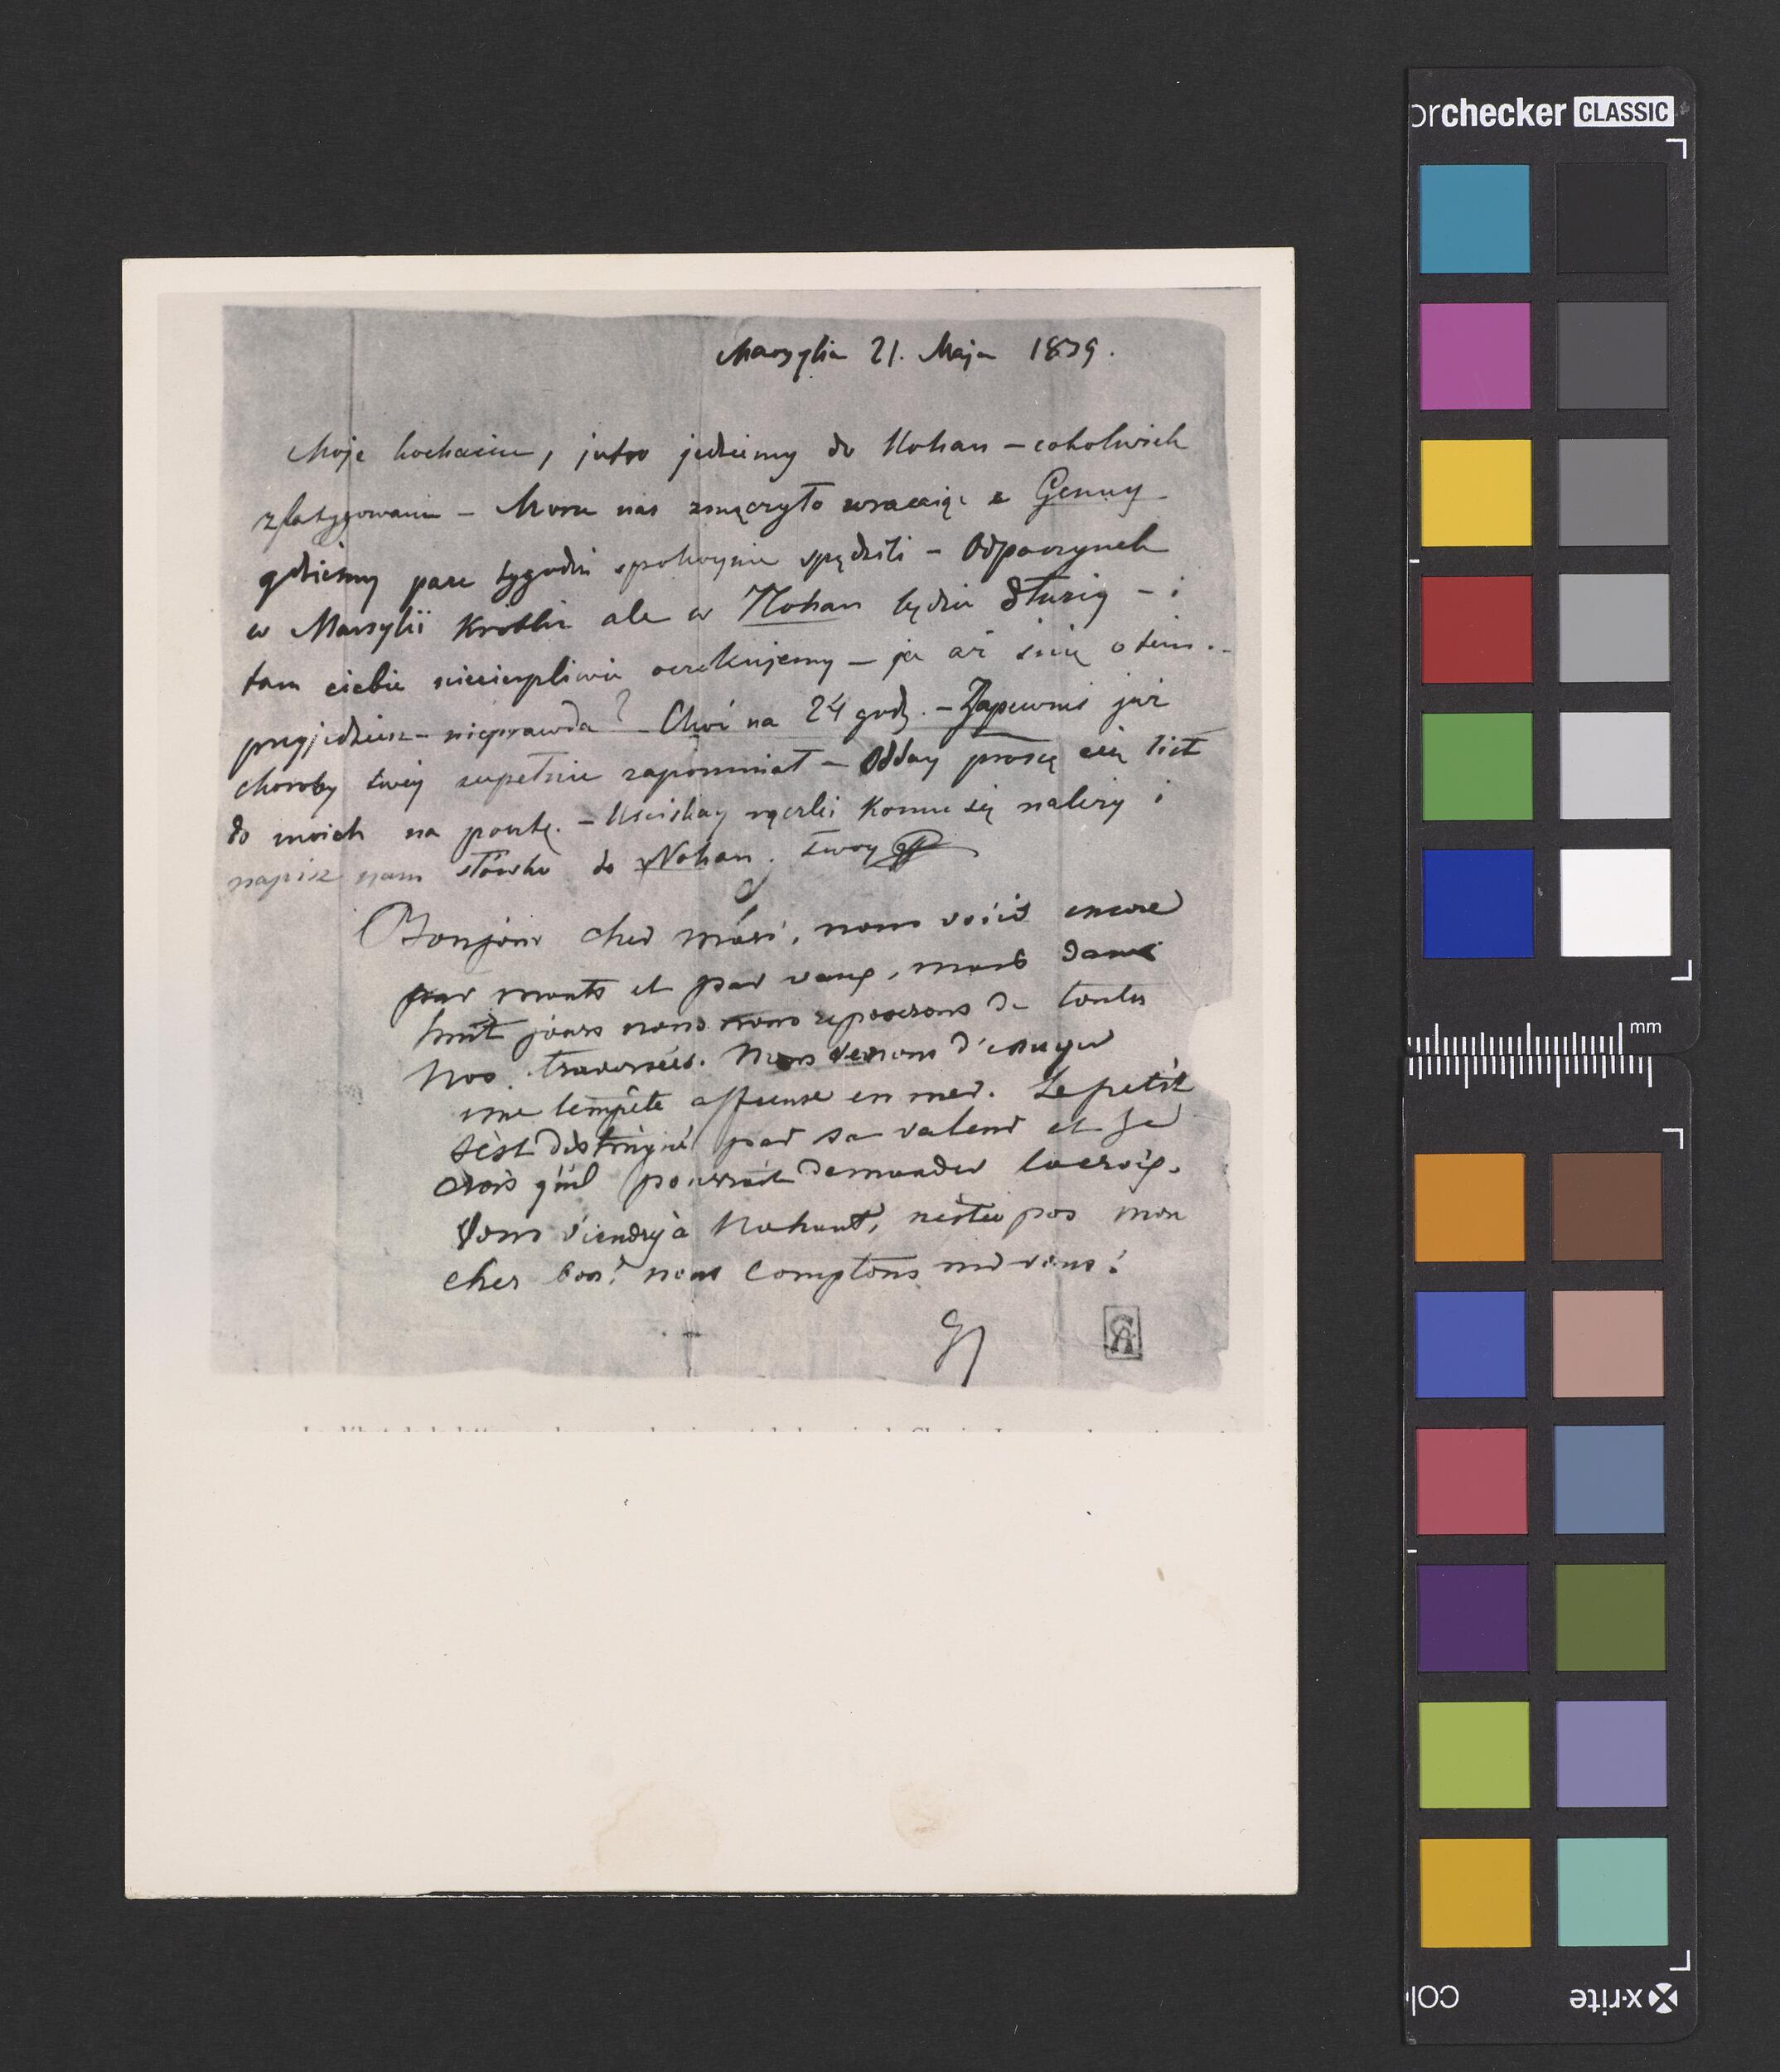 Marsylia 21. Maja 1839.
Moje kochanie, jutro jedziemy do Nohan – cokolwiek
zfatygowani – Morze nas zmęczyło wracaiąc z Genuy
gdzieśmy pare tygodni spokoynie spędzili – Odpoczynek
w Marsylii krótki ale w Nohan będzie dłuższy – i
tam ciebie niecierpliwie oczekujemy – ja aż śnię o tem..
przyjedziesz – nieprawda? – Choć na 24 godz. – Zapewnie już
choroby twéj zupełnie zapomniał – Odday proszę cię list
do moich na pocztę. – Uściskay rączki komu się należy i
napisz nam słówko do Nohan. twoy
Bonjour cher mari, nous voici encore
par monts et par vaux, mais dans
huit jours nous nous reposerons de toutes
nos traversées. Nous venons d'essuyer
une tempête affreuse en mer. Le petit
s'est distingué par sa valeur et je
crois qu'il pourrait demander la croix.
Vous viendrez à Nohant, n'est-ce pas mon
cher bon? nous comptons sur vous!
G
orchecker CLASSIC
mm
x-rite
col